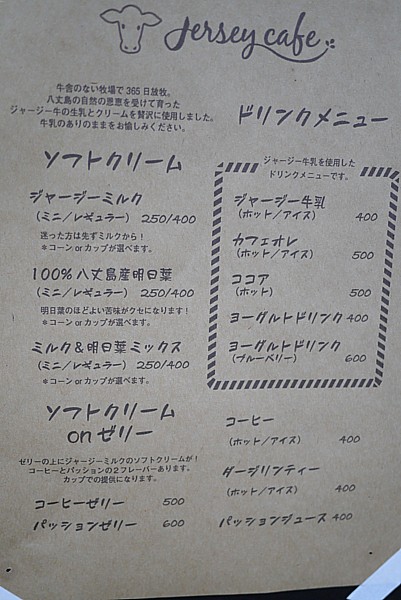 Jersey cafe
牛舎のない牧場で365日放牧。
八丈島の自然の恩恵を受けて育った
ジャージー牛の生乳とクリームを贅沢に使用しました。
牛乳のありのままをお愉しみください。
ソフトクリーム
ジャージーミルク
(ミニ/レギュラー) 250/400
迷った方は先ずミルクから！
＊コーン or カップが選べます。
100%八丈島産明日葉
(ミニ/レギュラー) 250/400
明日葉のほどよい苦味がクセになります！
＊コーン or カップが選べます。
ミルク&明日葉ミックス
(ミニ/レギュラー) 250/400
＊コーン or カップが選べます。
ソフトクリーム
on ゼリー
ゼリーの上にジャージーミルクのソフトクリームが！
コーヒーとパッションの２フレーバーあります。
カップでの提供になります。
コーヒーゼリー 500
パッションゼリー 600
ドリンクメニュー
ジャージー牛乳を使用した
ドリンクメニューです。
ジャージー牛乳
(ホット/アイス) 400
カフェオレ
(ホット/アイス) 500
ココア
(ホット) 500
ヨーグルトドリンク 400
ヨーグルトドリンク
(ブルーベリー) 600
コーヒー
(ホット/アイス) 400
ダージリンティー
(ホット/アイス) 400
パッションジュース 400